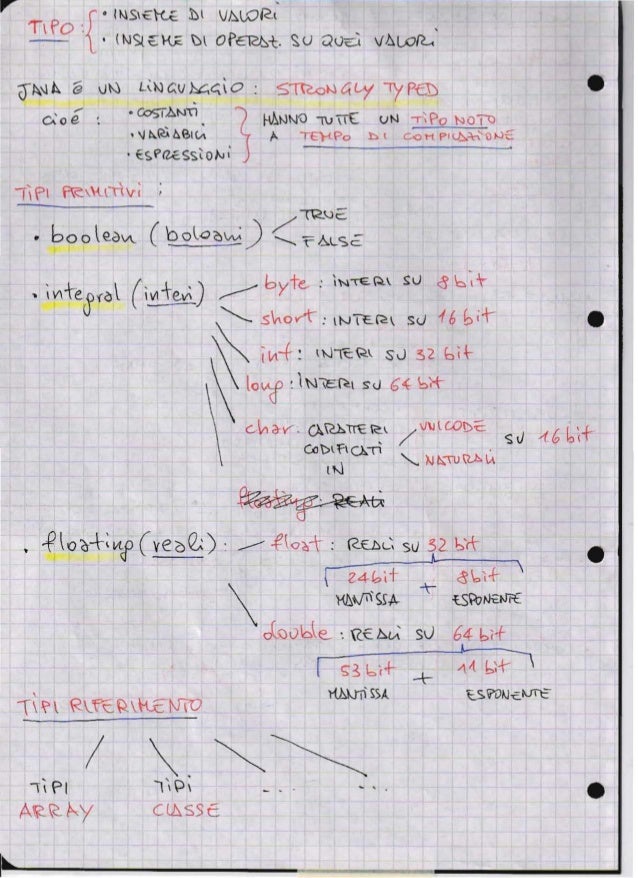 TIPO: { • INSIEME DI VALORI
• INSIEME DI OPERAT. SU QUEI VALORI
JAVA è UN LINGUAGGIO: STRONGLY TYPED
cioé : • COSTANTI
• VARIABILI
• ESPRESSIONI
} HANNO TUTTE UN TIPO NOTO
A TEMPO DI COMPILAZIONE
TIPI PRIMITIVI :
• boolean (boloani)
TRUE
FALSE
• integral (interi)
byte : INTERI SU 8 bit
short : INTERI SU 16 bit
int : INTERI SU 32 bit
long : INTERI SU 64 bit
char. CARATTERI
CODIFICATI
IN
UNICODE
NATURALI
SU 16 bit
floating: REALI
• floating (reali). float : REALI SU 32 bit
24 bit + 8 bit
MANTISSA ESPONENTE
double : REALI SU 64 bit
53 bit + 11 bit
MANTISSA ESPONENTE
TIPI RIFERIMENTO
TIPI TIPI - - - - - -
ARRAY CLASSE